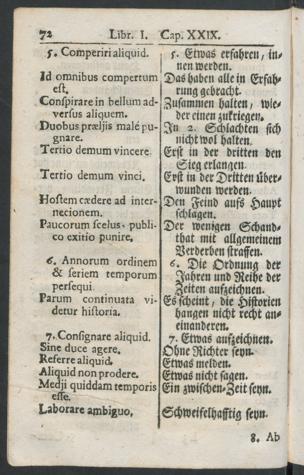 72 Libr. I. Cap. XXIX.
5. Comperiri aliquid.
Id omnibus compertum
est,
Conspirare in bellum ad-
versus aliquem.
Duobus præljis malé pu-
gnare.
Tertio demum vincere.
Tertio demum vinci.
Hostem cædere ad inter-
necionem.
Paucorum scelus, publi-
co exitio punire,
6. Annorum ordinem
& seriem temporum
persequi
Parum continuata vi-
detur historia.
7. Consignare aliquid.
Sine duce agere,
Referre aliquid.
Aliquid non prodere.
Medji quiddam temporis
esse.
Laborare ambiguo,
5. Etwas erfahren, in-
nen werden.
Das haben alle in Erfah-
rung gebracht.
Zusammen halten, wie-
der einen zukriegen.
In 2. Schlachten sich
nicht wol halten.
Erst in der dritten den
Sieg erlangen.
Erst in der Dritten über-
wunden werden.
Den Feind aufs Haupt
schlagen.
Der wenigen Schand-
that mit allgemeinem
Verderben straffen.
6. Die Ordnung der
Jahren und Reihe der
Zeiten aufzeichnen.
Es scheint, die Historien
hangen nicht recht an-
einanderen.
7. Etwas aufzeichnen.
Ohne Richter seyn.
Etwas melden.
Etwas nicht sagen.
Ein zwischen-Zeit seyn.
Schweifelhafftig seyn.
8. Ab